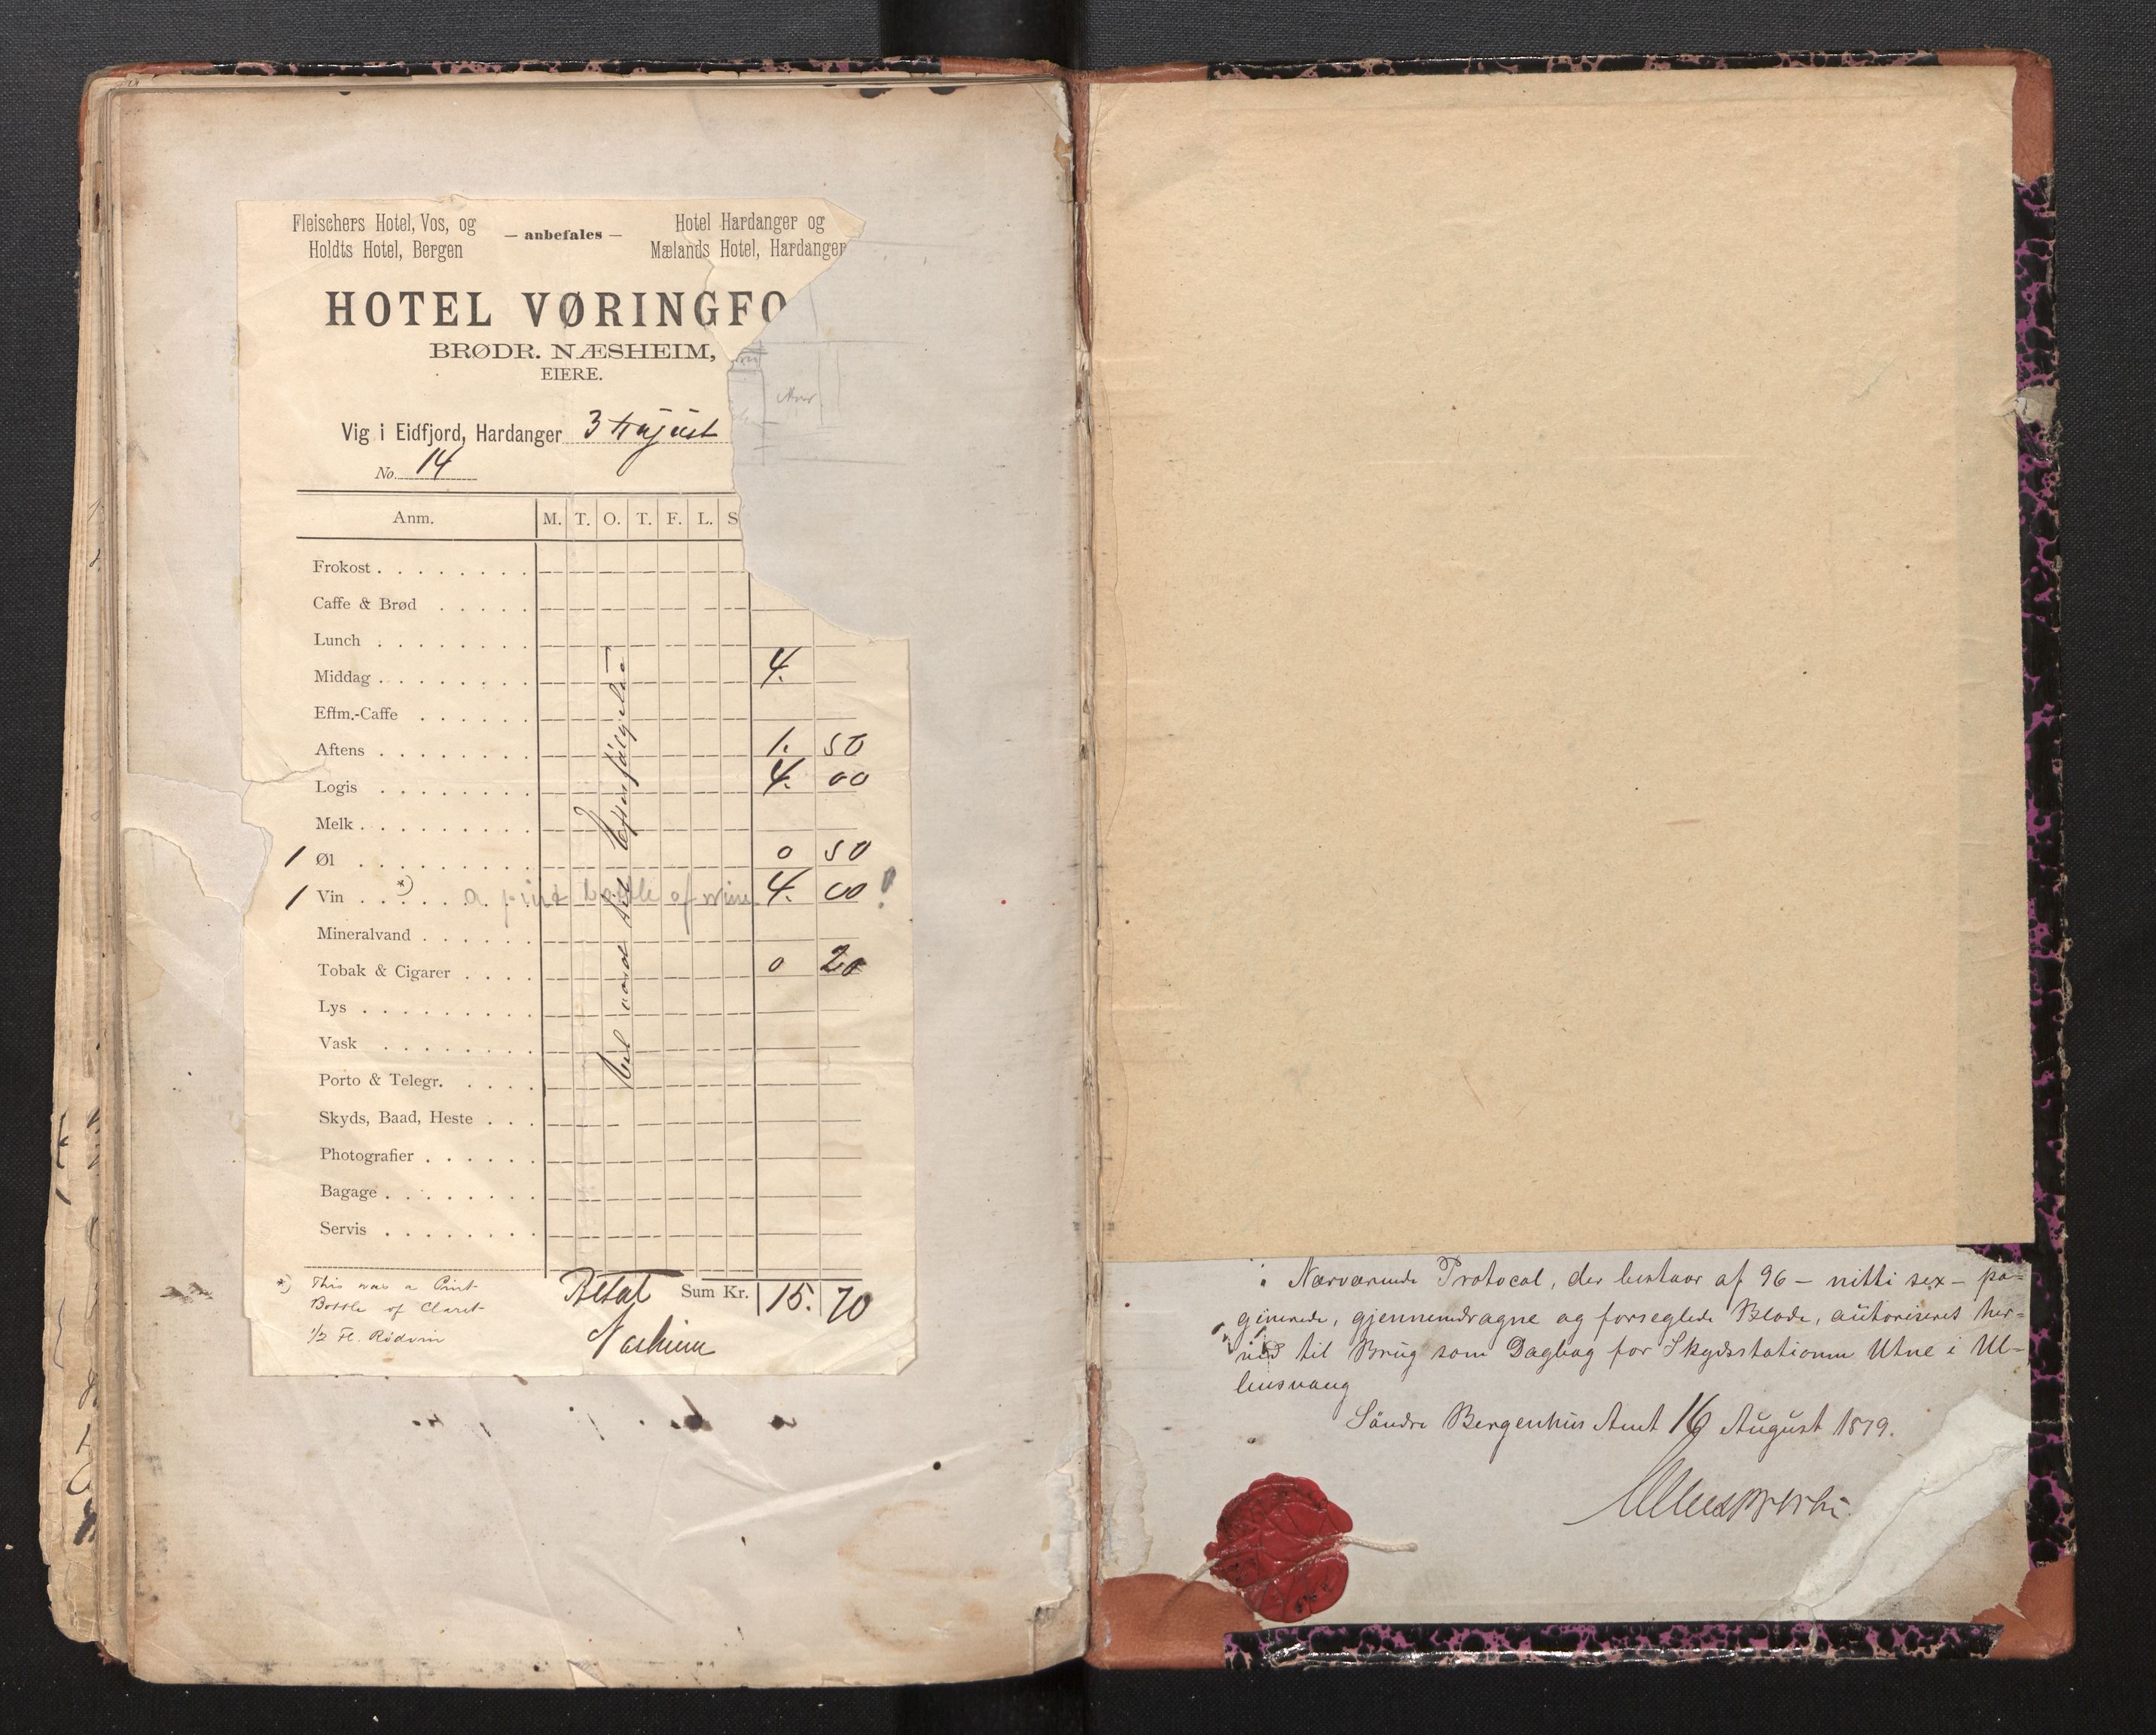 Fleischers Hotel, Vos, og
Holdts Hotel, Bergen
— anbefales —
Hotel Hardanger og
Mælands Hotel, Hardanger
HOTEL VØRINGFO
BRØDR. NÆSHEIM,
EIERE.
Vig i Eidfjord, Hardanger 3 August
No. 14
Anm. M. T. O. T. F. L. S
Frokost
Caffe & Brød
Lunch
Middag 4.
Eftm.-Caffe
Aftens 1. 50
Logis 4. 00
Melk
1 Øl 0 50
1 Vin *) a pint bottle of wine 4. 00 !
Mineralvand
Tobak & Cigarer 0 20
Lys
Vask
Porto & Telegr.
Skyds, Baad, Heste
Photografier
Bagage
Servis
Betalt Sum Kr. 15. 70
Næsheim
*) This was a Pint
Bottle of Claret
1/2 Fl. Rödvin
Nærværende Protocol, der bestaar af 96 — nitti sex — pa-
ginerede, gjennemdragne og forseglede Blade, autoriseres her-
ved til Brug som Dagbog for Skydsstationen Utne i Ul-
lensvang
Söndre Bergenhus Amt 16 August 1879.